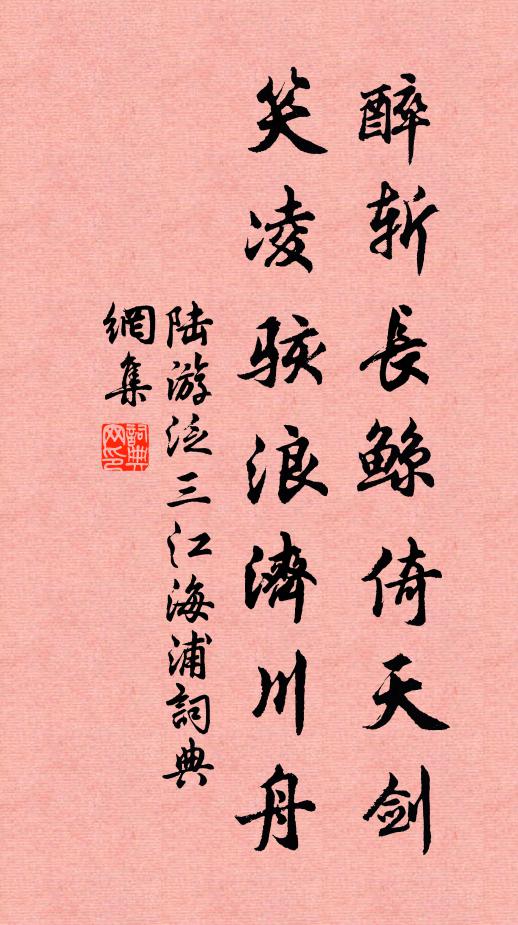 醉斩長鯨倚天剑
笑凌駭浪濟川舟
陆游泛三江海浦詞典
網集
詞典
网印